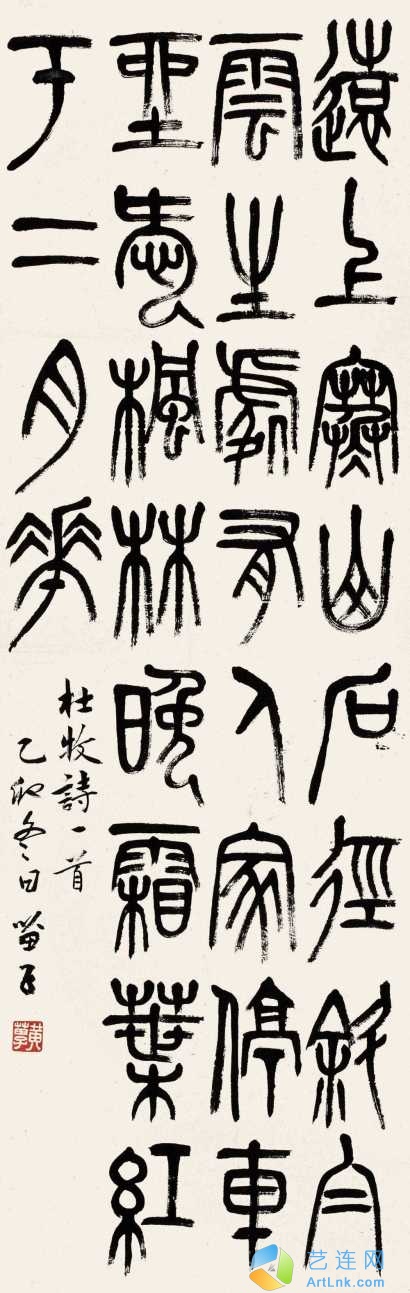 遠上寒山石徑斜白
雲生處有人家停車
坐愛楓林晚霜葉紅
于二月華
杜牧詩一首
乙卯冬日
艺连网
ArtLnk.com